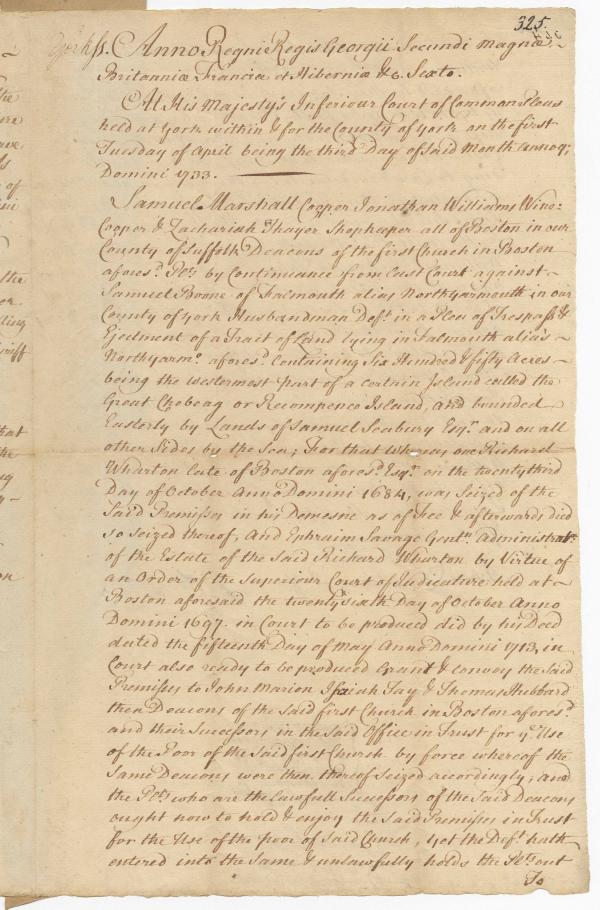 325.
Yorkss. Anno Regni Regis Georgii Secundi Magnæ
Britanniæ Franciæ et Hiberniæ &c. Sexto.
At His Majesty's Inferiour Court of Common Pleas
held at York within & for the County of York on the first
Tuesday of April being the third Day of said Month annoq;
Domini 1733.
Samuel Marshall Cooper Jonathan Williams Wine-
Cooper & Zachariah Thayer Shopkeeper all of Boston in our
County of Suffolk Deacons of the first Church in Boston
afores.d Pl.ts by Continuance from last Court against
Samuel Boone of Falmouth alias North yarmouth in our
County of York Husbandman Def.t in a Plea of Trespass &
Ejectment of a Tract of Land lying in Falmouth alias
North yarm.o afores.d Containing Six Hundred & fifty Acres
being the westermost part of a certain Island called the
Great Chebeag or Recompence Island, and bounded
Easterly by Lands of Samuel Seabury Esq.r and on all
other Sides by the Sea; For that Whereas one Richard
Wharton late of Boston afores.d Esq.r on the twenty third
Day of October Anno Domini 1684, was Seized of the
Said Premisses in his Demesne as of Fee & afterwards died
so seized thereof, And Ephraim Savage Gent.n Administrat.r
of the Estate of the said Richard Wharton by Virtue of
an Order of the Superiour Court of Judicature held at
Boston aforesaid the twenty sixth Day of October Anno
Domini 1697. in Court to be produced did by his Deed
dated the fifteenth Day of May Anno Domini 1713, in
Court also ready to be produced Grant & convey the said
Premisses to John Marion Isaiah Tay & Thomas Hubbard
then Deacons of the said first Church in Boston afores.d
and their Successors in the said Office in Trust for y.e Use
of the Poor of the Said first Church by force whereof the
Same Deacons were then thereof Seized accordingly; and
the Pl.ts who are the lawfull Successors of the Said Deacons
ought now to hold & enjoy the Said Premisses in Trust
for the Use of the poor of Said Church, yet the Def.t hath
entered into the Same & unlawfully holds the Pl.ts out
To